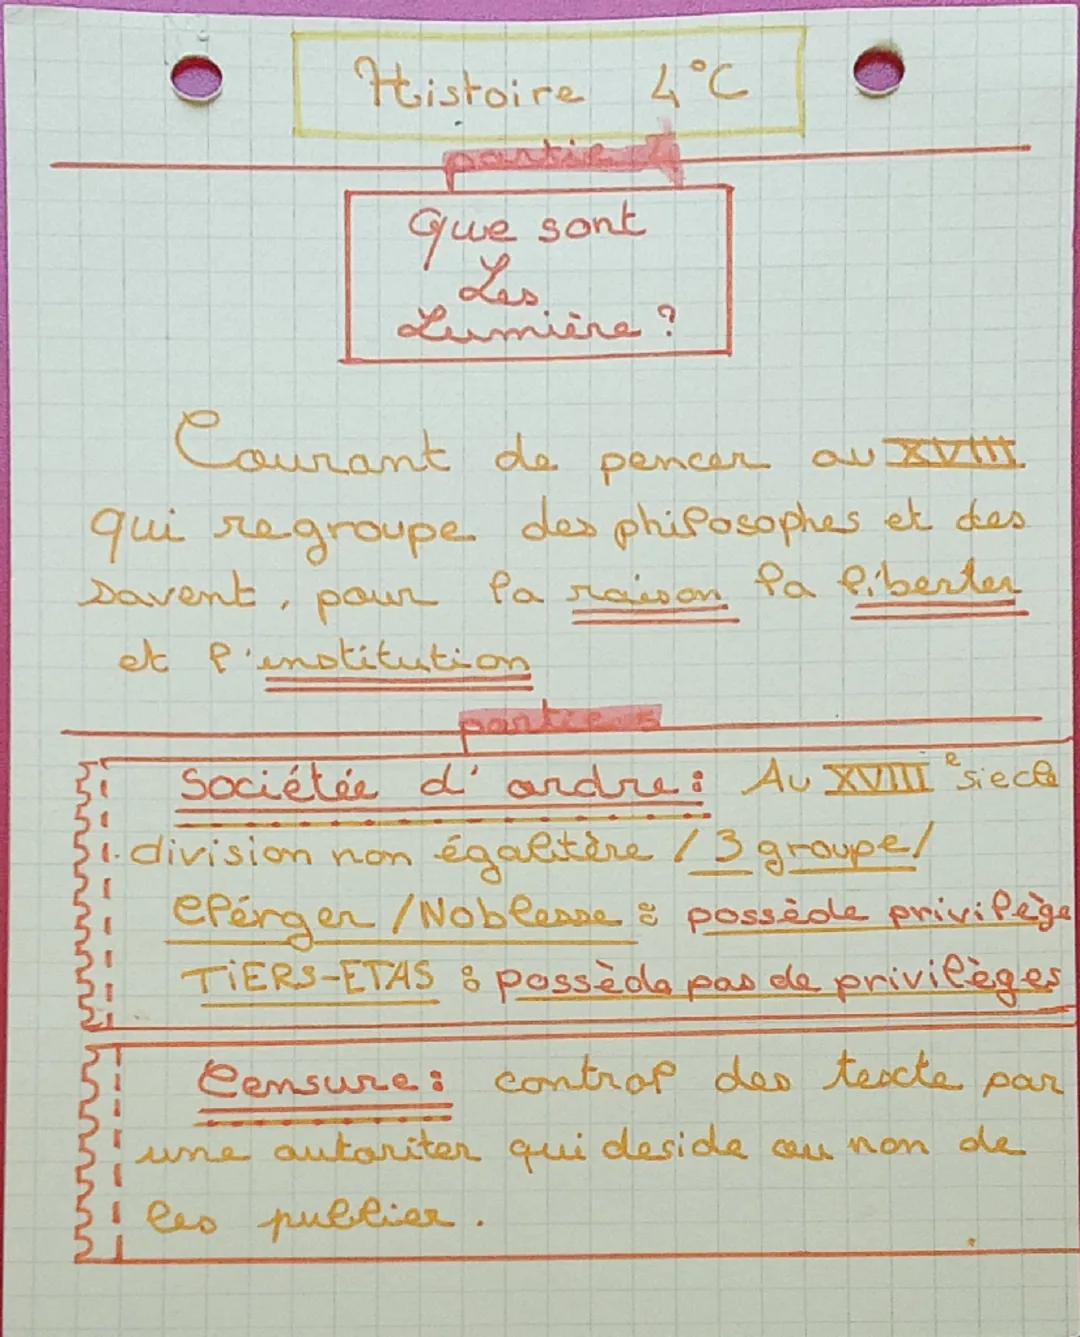 Histoire 4°C
partie
Que sont
Les
Lumière ?
Courant de pencer au XVIII
qui regroupe des philosophes et des
savent, pour la raison la liberter
et l'institution
partie 5
Sociétée d'ordre : Au XVIII e siecle
division non égalitère / 3 groupe /
clérger / Noblesse : possède privilège
TIERS-ETAS : possède pas de privilèges
Censure : control des texte par
une autoriter qui deside ou non de
les publier.